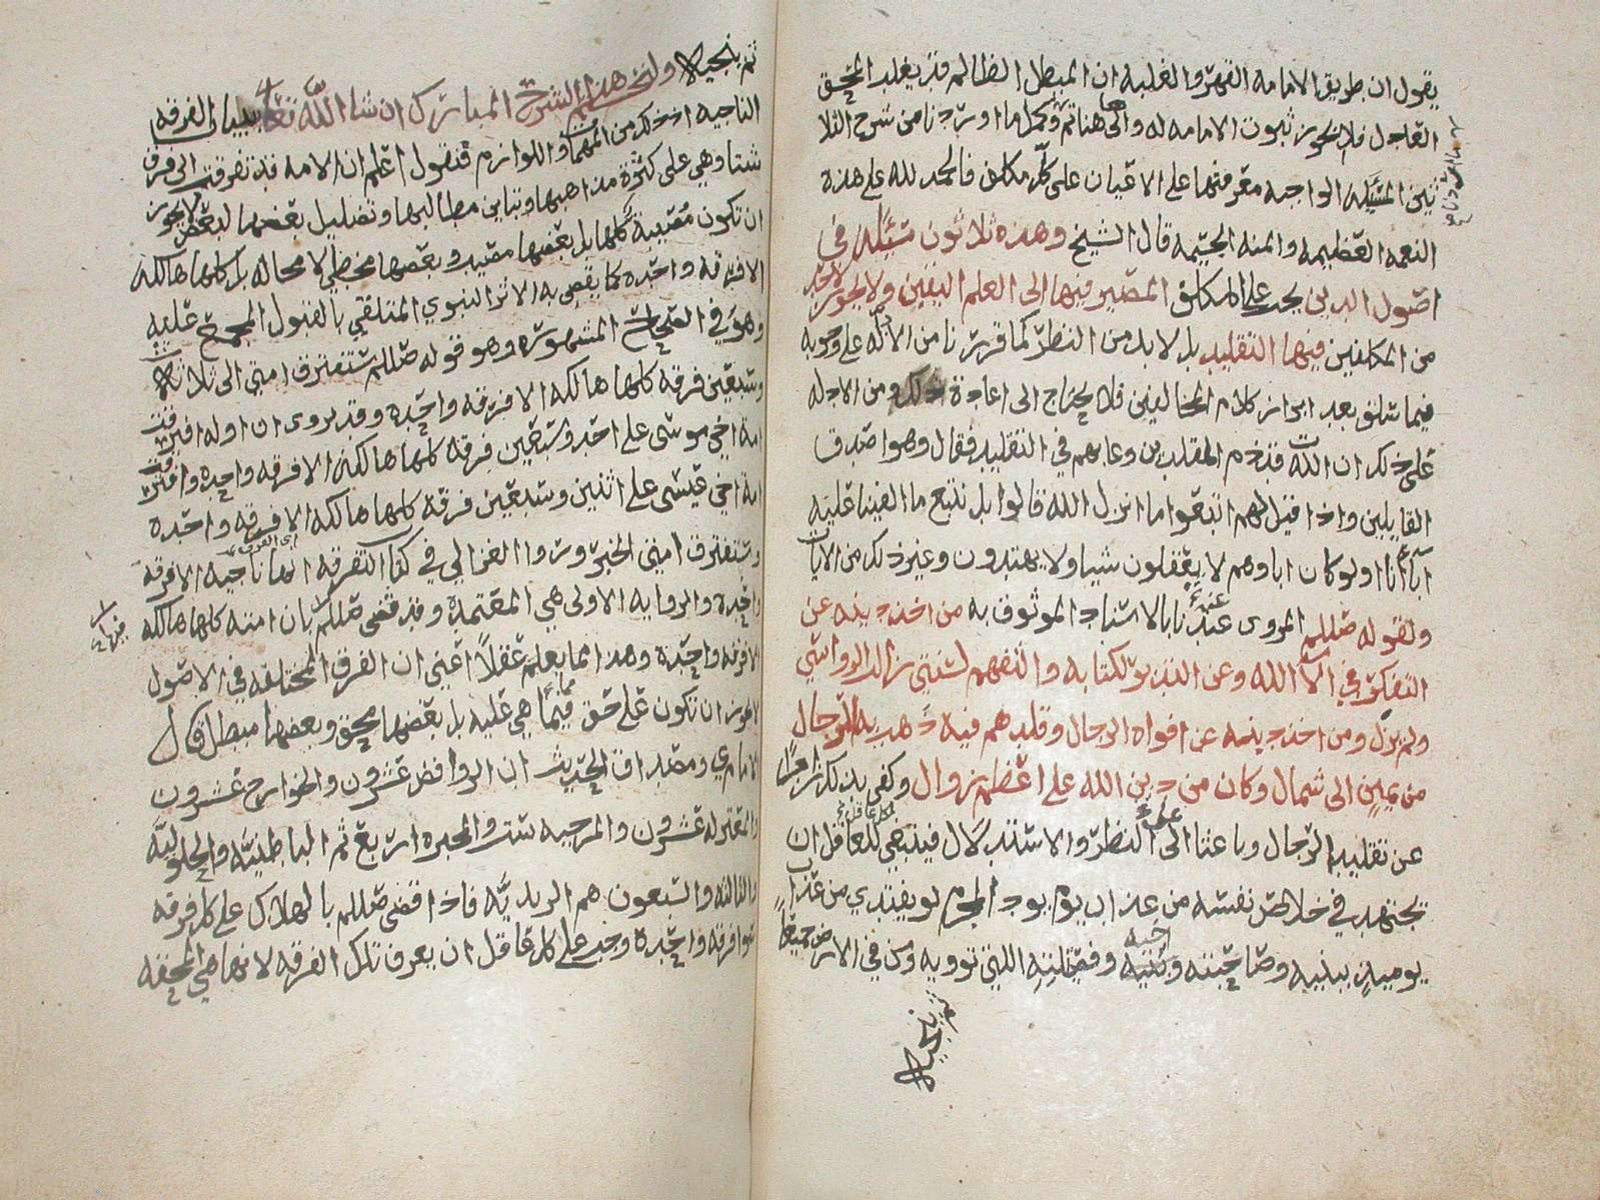 يقول ان طريق الامامه القهر والغلبه ان المبطل الظالم قد يغلب المحق
العادل فلا يجوز ثبوت الامامه له والى هاهنا تم وكمل ما اوردنا من شرح الثلا
ثين المسئله الواجبه معرفتها على الاعيان على كل مكلف فالحمد لله على هذه
النعمه العظيمه والمنه الجسيمه قال الشيخ وهذه ثلاثون مسئله في
اصول الدين يجب على المكلف المصير فيها الى العلم اليقين ولا يجوز لاحد
من المكلفين فيها التقليد بل لا بد من النظر كما قررنا من الادله على وجوبه
فيما سلف بعد ابراز كلام المخالفين فلا يحتاج الى اعادة ذلك ومن الادله
على ذلك ان الله قد ذم المقلدين وعابهم في التقليد فقال وهو اصدق
القايلين واذا قيل لهم اتبعوا ما انزل الله قالوا بل نتبع ما الفينا عليه
اباءنا اولو كان اباوهم لا يعقلون شيا ولا يهتدون وغير ذلك من الايات
ولقوله صللم المروى عندنا بالاسناد الموثوق به من اخذ دينه عن
التفكر في الآ الله وعن التدبر لكتابه والتفهم لسنتي زالت الرواسي
ولم يزل ومن اخذ دينه عن افواه الرجال وقلدهم فيه ذهبت به الرجال
من يمين الى شمال وكان من دين الله على اعظم زوال وكفى بذلك زاجرا
عن تقليد الرجال وباعثا الى النظر والاستدلال فينبغي للعاقل ان
يجتهد في خلاص نفسه من عذاب يوم يود المجرم لو يفتدي من عذاب
يوميذ ببنيه وصاحبته واخيه وفصيلته التي توويه ومن في الارض جميعا
ثم ينجيه
ثم ينجيه ولنختم هذا الشرح المبارك ان شا الله تعالى ببيان الفرقه
الناجيه اذ ذلك من المهمات واللوازم فنقول اعلم ان الامه قد تفرقت الى فرق
شتا وهي على كثرة مذاهبها وتباين مطالبها وتضليل بعضها لبعض لا يجوز
ان تكون مصيبة كلها بل بعضها مصيب وبعضها مخطي لا محاله بل كلها هالكه
الا فرقه واحده كما يقضي به الاثر النبوي المتلقي بالقبول المجمع عليه
وهو في الصحاح المشهوره وهو قوله صللم ستفترق امتي الى ثلاثة
وسبعين فرقه كلها هالكه الا فرقه واحده وقد يروى ان اوله افترقت
امة اخي موسى على احد وسبعين فرقه كلها هالكه الا فرقه واحده وافترقت
امة اخي عيسى على اثنين وسبعين فرقة كلها هالكه الا فرقه واحده
وستفترق امتي الخبر وروا الغزالي في كتاب التفرقه انها ناجيه الا فرقه
واحده والروايه الاولى هي المعتمده وقد قضى صللم بان امته كلها هالكه
الا فرقه واحده وهذا مما يعلم عقلاً اعني ان الفرق المختلفه في الاصول
لا يجوز ان تكون على حق فيما هي عليه بل بعضها محق وبعضها مبطل قال
الامام ي ومصداق الحديث ان الروافض عشرون والخوارج عشرون
والمعتزله عشرون والمرجيه ست والمجبره اربع ثم الباطنيه والحلوليه
والثالثه والسبعون هم الزيديه فاذا قضى صللم بالهلاك على كل فرقه
سوا فرقه واحده وجب على كل عاقل ان يعرف تلك الفرقه لانها هي المحقه